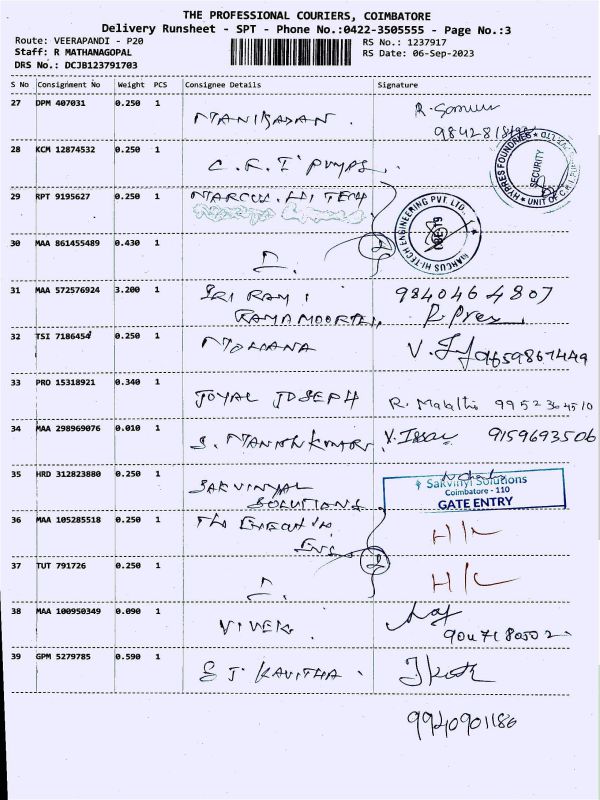 THE PROFESSIONAL COURIERS, COIMBATORE
Delivery Runsheet - SPT - Phone No.:0422-3505555 - Page No.:3
Route: VEERAPANDI - P20
RS No.: 1237917
Staff: R MATHANAGOPAL
RS Date: 06-Sep-2023
DRS No.: DCJB123791703
S No Consignment No Weight PCS Consignee Details Signature
27 DPM 407031 0.250 1 MANIKADAN.
28 KCM 12874532 0.250 1 C.R.I PUMPS.
HYPRES FOUNDRIES
SECURITY
UNIT OF C.R.I. PUMPS
29 RPT 9195627 0.250 1 MARCUS HI TECH
MARCUS HI-TECH ENGINEERING PVT. LTD.
CBE-19
30 MAA 861455489 0.430 1 2
31 MAA 572576924 3.200 1 SRI RAM 9840464807
RAMAMOORTHY
32 TSI 7186454 0.250 1 MOHANA 9659867449
33 PRO 15318921 0.340 1 JOYAL JOSEPH R. Malathi 9952364510
34 MAA 298969076 0.010 1 S. MANISH KUMAR 9159693506
35 HRD 312823880 0.250 1 SAKVINYAL
SOLUTIONS
Sakvinyl Solutions
Coimbatore - 110
GATE ENTRY
36 MAA 105285518 0.250 1 THE EXECUTIVE
ENG H/C
37 TUT 791726 0.250 1 2 H/C
38 MAA 100950349 0.090 1 VIVEK.
39 GPM 5279785 0.590 1 S J KAVITHA.
9940901186